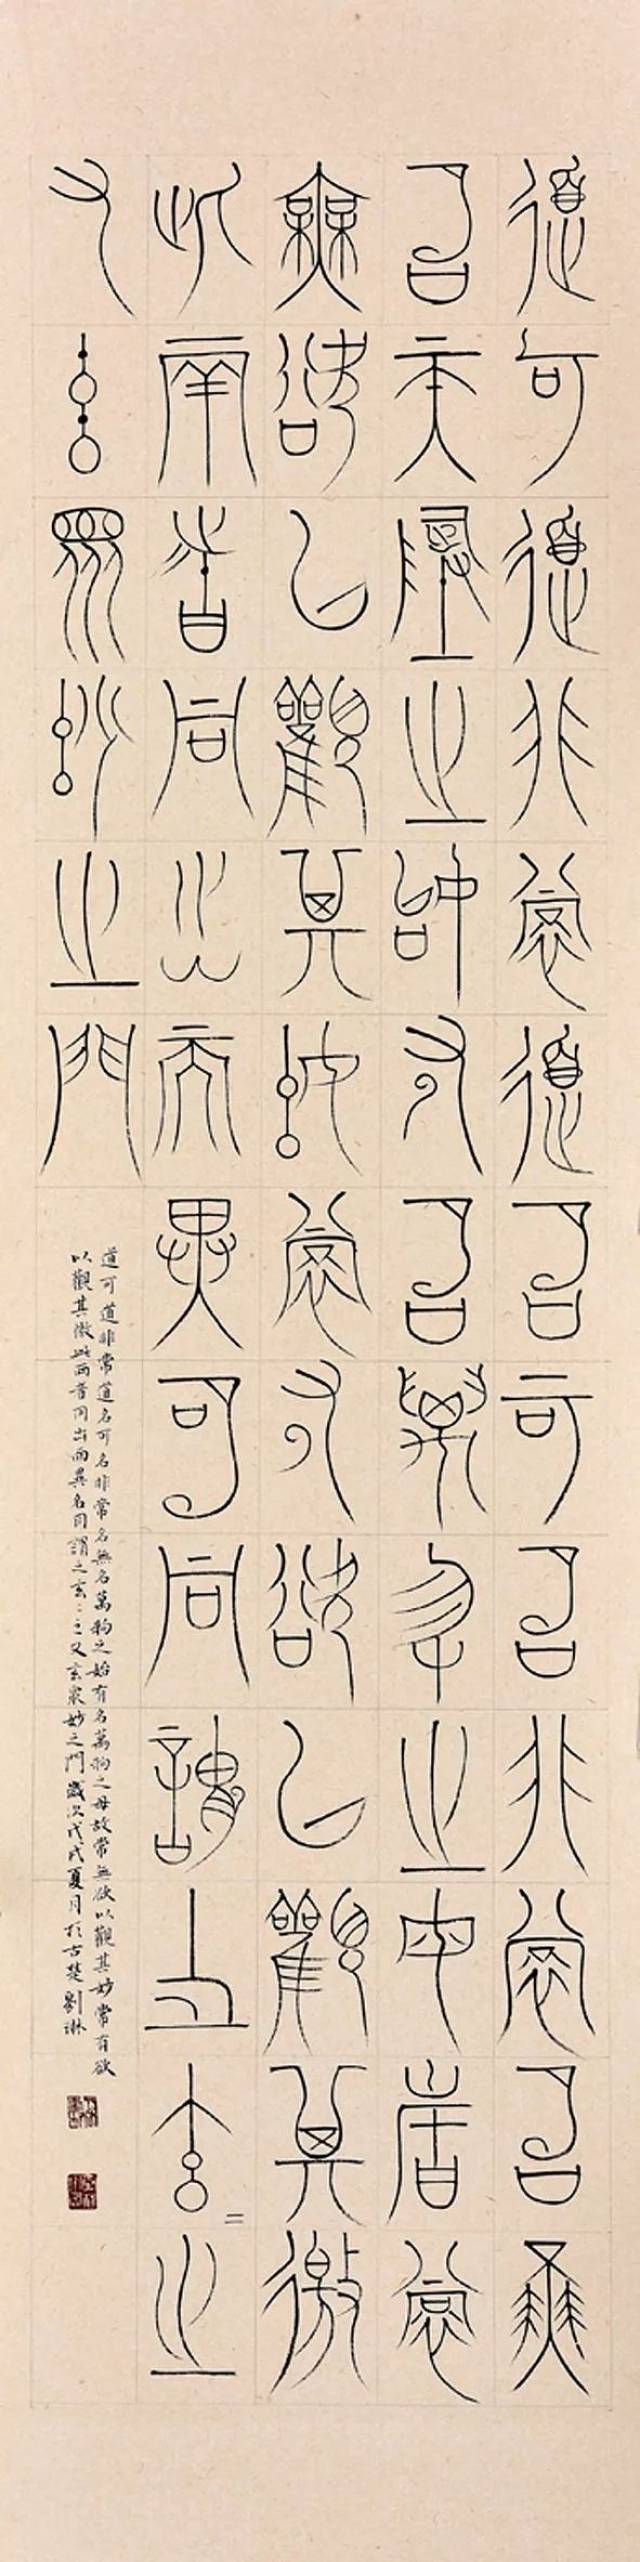 道可道非常道名可名非常名無
名天地之始有名萬物之母故常
無欲以觀其妙常有欲以觀其徼
此兩者同出而異名同謂之玄〻之
又玄眾妙之門
道可道非常道名可名非常名無名萬物之始有名萬物之母故常無欲以觀其妙常有欲
以觀其徼此兩者同出而異名同謂之玄〻之又玄衆妙之門歲次戊戌夏月於古楚劉琳